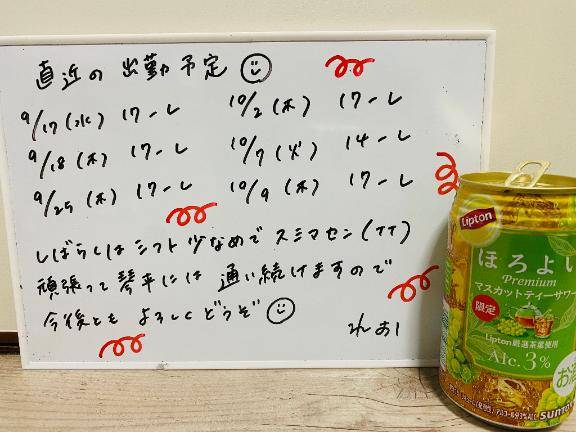 直近の出勤予定
9/17(水) 17-L
9/18(木) 17-L
9/25(木) 17-L
10/2(木) 17-L
10/7(火) 14-L
10/9(木) 17-L
しばらくはシフト少なめでスミマセン(TT)
頑張って琴平には通い続けますので
今後ともよろしくどうぞ
れおし
Lipton
ほろよい
Premium
マスカットティーサワー
限定
Lipton厳選茶葉使用
Alc.3%
お酒
SUNTORY